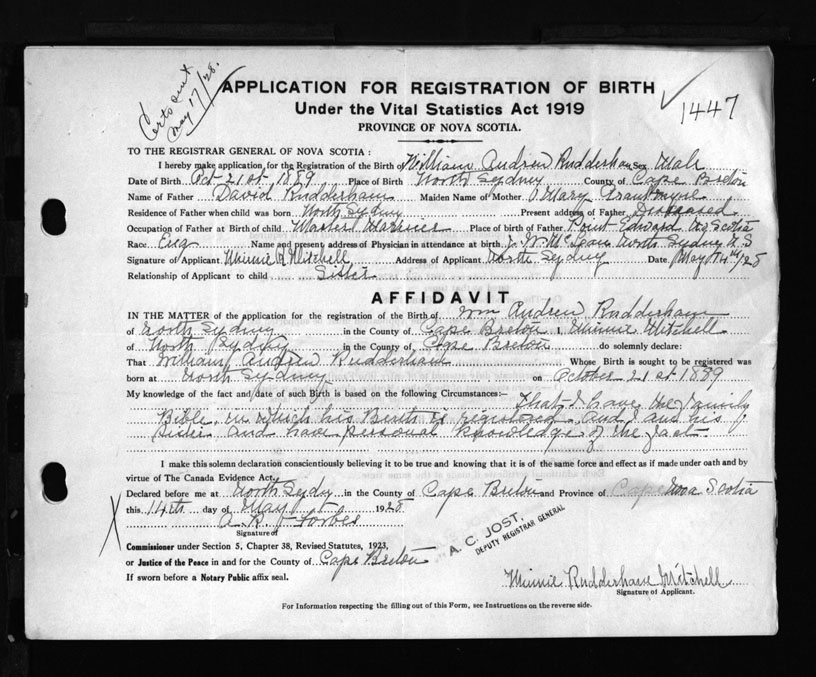 Certs sent
May 17/28.
APPLICATION FOR REGISTRATION OF BIRTH
1447
Under the Vital Statistics Act 1919
PROVINCE OF NOVA SCOTIA.
TO THE REGISTRAR GENERAL OF NOVA SCOTIA:
I hereby make application, for the Registration of the Birth of William Andrew Rudderham Sex Male
Date of Birth Oct 21st 1889 Place of Birth North Sydney County of Cape Breton
Name of Father David Rudderham Maiden Name of Mother Mary
Residence of Father when child was born North Sydney Present address of Father Deceased
Occupation of Father at Birth of child Master Place of birth of Father Point Edward N. Scotia
Race Eng Name and present address of Physician in attendance at birth North Sydney N.S
Signature of Applicant Minnie R Mitchell Address of Applicant North Sydney Date May 14th/28
Relationship of Applicant to child Sister
AFFIDAVIT
IN THE MATTER of the application for the registration of the Birth of Wm Andrew Rudderham
of North Sydney in the County of Cape Breton I, Minnie Mitchell
of North Sydney in the County of Cape Breton do solemnly declare:
That William Andrew Rudderham Whose Birth is sought to be registered was
born at North Sydney on October 21st 1889
My knowledge of the fact and date of such Birth is based on the following Circumstances:— That I have the family
Bible, in which his Birth is registered and I am his
sister and have personal knowledge of the fact.
I make this solemn declaration conscientiously believing it to be true and knowing that it is of the same force and effect as if made under oath and by
virtue of The Canada Evidence Act.
Declared before me at North Sydney in the County of Cape Breton and Province of Nova Scotia
this 14th day of May 1928
A. R. Forbes
Signature of
Commissioner under Section 5, Chapter 38, Revised Statutes, 1923,
or Justice of the Peace in and for the County of Cape Breton
If sworn before a Notary Public affix seal.
A. C. JOST,
DEPUTY REGISTRAR GENERAL
Minnie Rudderham Mitchell
Signature of Applicant.
For Information respecting the filling out of this Form, see Instructions on the reverse side.